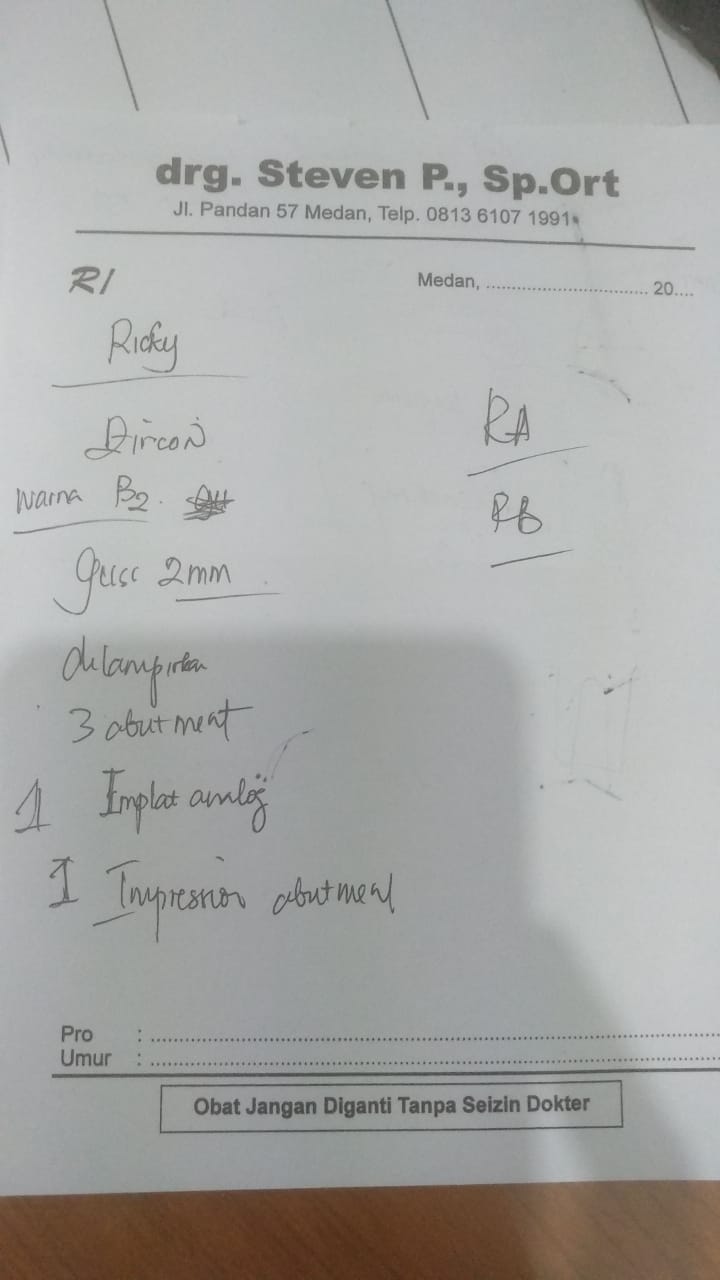 drg. Steven P., Sp.Ort
Jl. Pandan 57 Medan, Telp. 0813 6107 1991
R/
Medan, .................................. 20....
Ricky
Zircon
RA
Warna B2.
RB
gusi 2mm
dilampirkan
3 abutment
1 Implat analog
1 Impression abutment
Pro :
Umur :
Obat Jangan Diganti Tanpa Seizin Dokter